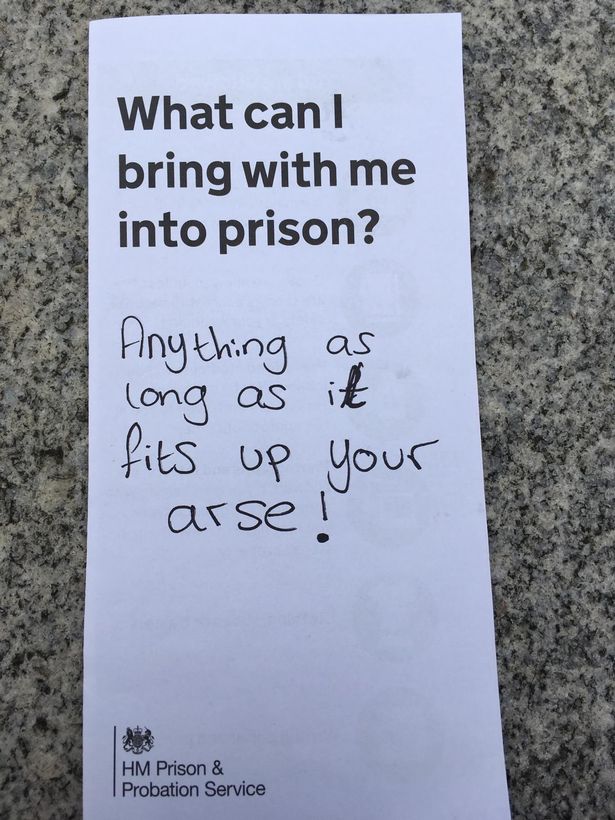 What can I
bring with me
into prison?
Anything as
long as it
fits up your
arse!
HM Prison &
Probation Service